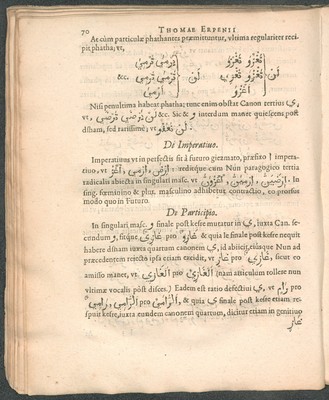 70 THOMAE ERPENII
At cùm particulæ phathantes præmittuntur, vltima regulariter reci-
pit phatha; vt,
&c. لَنْ لَنْ
Nisi penultima habeat phatha; tunc enim obstat Canon tertius ى,
vt, &c. Sic & و interdum manet quiescens post
dham, sed rarissimè; vt
De Imperatiuo.
Imperatiuus vt in perfectis fit à futuro giezmato, præfixo ا impera-
tiuo, vt reditque cum Nun paragogico tertia
radicalis abiecta in singulari masc. vt In
sing. fœminino & plur. masculino adhibetur contractio, eo prorsus
modo quo in Futuro.
De Participio.
In singulari masc. و finale post kesre mutatur in ى, iuxta Can. se-
cundum و, sitque غَازِىٌ pro غَازِوٌ & quia Ie finale post kesre nequit
habere dham iuxta quartum canonem ى, id abiicit, iúnque Nun ad
præcedentem reiecto ipsa etiam excidit, vt غَازٍ pro غَازِىٌ, sicut eo
amisso manet, vt اَلْغَازِى pro اَلْغَازِىُ (nam articulum tollere nun
vltimæ vocalis pòst disces.) Eadem est ratio defectiui ى, vt رَامٍ pro
رَامِىٌ, اَلرَّامِى pro اَلرَّامِىُ, & quia ى finale post kesre etiam re-
spuit kesre, iuxta eundem canonem quartum, dicitur etiam in genitiuo
غَازٍ